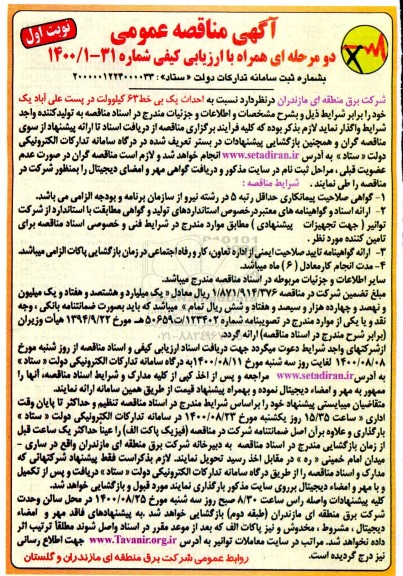 نوبت اول
آگهی مناقصه عمومی
دو مرحله ای همراه با ارزیابی کیفی شماره ۳۱-۱۴۰۰/۱
بشماره ثبت سامانه تدارکات دولت «ستاد» : ۲۰۰۰۰۰۱۲۲۴۰۰۰۰۳۳
شرکت برق منطقه ای مازندران درنظردارد نسبت به احداث یک بی خط ۶۳ کیلوولت در پست علی آباد یک
خود را برابر شرایط ذیل و بشرح مشخصات و اطلاعات و جزئیات مندرج در اسناد مناقصه به تولیدکننده واجد
شرایط واگذار نماید لازم بذکر بوده که کلیه فرآیند برگزاری مناقصه از دریافت اسناد تا ارائه پیشنهاد از سوی
مناقصه گران و همچنین بازگشایی پیشنهادات در بستر تعریف شده در درگاه سامانه تدارکات الکترونیکی
دولت « ستاد » به آدرس www.setadiran.ir انجام خواهد شد و لازم است مناقصه گران در صورت عدم
عضویت قبلی ، مراحل ثبت نام در سایت مذکور و دریافت گواهی مهر و امضای دیجیتال را بمنظور شرکت در
مناقصه را طی نمایند . شرایط مناقصه :
۱- گواهی صلاحیت پیمانکاری حداقل رتبه ۵ در رشته نیرو از سازمان برنامه و بودجه الزامی می باشد.
۲- ارائه اسناد و گواهینامه های معتبر درخصوص استانداردهای تولید و گواهی مطابقت با استاندارد از شرکت
توانیر ( جهت تجهیزات پیشنهادی ) مطابق موارد مندرج در شرایط فنی و خصوصی اسناد مناقصه برای
تامین کننده مورد نظر .
۳- ارائه گواهینامه تایید صلاحیت ایمنی از اداره تعاون، کار و رفاه اجتماعی در زمان بازگشایی پاکات الزامی میباشد.
۴- مدت انجام کار معادل ( ۶ ) ماه میباشد.
سایر اطلاعات و جزئیات مربوطه در اسناد مناقصه مندرج میباشد.
مبلغ تضمین شرکت در مناقصه ۱/۸۷۱/۹۱۴/۳۷۶ ریال معادل « یک میلیارد و هشتصد و هفتاد و یک میلیون
و نهصد و چهارده هزار و سیصد و هفتاد و شش ریال تمام » میباشد که باید بصورت ضمانتنامه بانکی ، وجه
نقد و یا یکی از موارد مندرج در تصویبنامه شماره ۱۲۳۴۰۲/ت۵۰۶۵۹هـ مورخ ۱۳۹۴/۹/۲۲ هیأت وزیران
(برابر شرح مندرج در اسناد مناقصه) ارائه گردد.
ازشرکتهای واجد شرایط دعوت میگردد جهت دریافت اسناد ارزیابی کیفی و اسناد مناقصه از روز شنبه مورخ
۱۴۰۰/۰۸/۰۸ لغایت روز سه شنبه مورخ ۱۴۰۰/۰۸/۱۱ به درگاه سامانه تدارکات الکترونیکی دولت « ستاد »
به آدرس www.setadiran.ir مراجعه و پس از اخذ کپی از کلیه مدارک و شرایط اسناد مناقصه، آنها را
ممهور به مهر و امضاء دیجیتال نموده و بهمراه پیشنهاد قیمت از طریق همین سامانه ارائه نمایند.
متقاضیان میبایستی پیشنهاد خود را براساس شرایط مندرج در اسناد مناقصه تنظیم و حداکثر تا پایان وقت
اداری « ساعت ۱۵/۳۵ روز یکشنبه مورخ ۱۴۰۰/۰۸/۲۳ در سامانه تدارکات الکترونیکی دولت « ستاد »
بارگذاری و علاوه بران اصل ضمانتنامه شرکت در مناقصه (فیزیک پاکت الف) را عیناً حداکثر یک ساعت قبل
از زمان بازگشایی مندرج در اسناد مناقصه به دبیرخانه شرکت برق منطقه ای مازندران واقع در ساری -
میدان امام خمینی « ره » در مقابل اخذ رسید تحویل نمایند. لازم بذکراست فقط پیشنهاد شرکتهائی که
مدارک و اسناد مناقصه را از طریق درگاه سامانه تدارکات الکترونیکی دولت « ستاد » دریافت و پس از تکمیل
و با مهر و امضاء دیجیتال برروی سایت مذکور بارگذاری نمایند مورد قبول و بازگشایی خواهد شد.
کلیه پیشنهادات واصله راس ساعت ۸/۳۰ صبح روز سه شنبه مورخ ۱۴۰۰/۰۸/۲۵ در محل سالن وحدت
شرکت برق منطقه ای مازندران (طبقه دوم) بازگشایی خواهد شد .به پیشنهادهای فاقد مهر و امضاء
دیجیتال ، مشروط ، مخدوش و نیز پاکات الف که بعد از موعد مقرر در اسناد واصل شوند مطلقا ترتیب اثر
داده نخواهد شد. مراتب در سایت معاملات توانیر به آدرس www.Tavanir.org.ir جهت اطلاع رسانی
نیز درج گردیده است.
روابط عمومی شرکت برق منطقه ای مازندران و گلستان